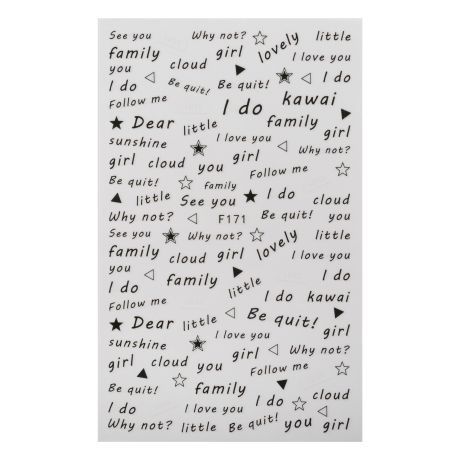 See you Why not? lovely little
family girl I love you
you cloud I do
I do Be quit! kawai
Follow me I do family
Dear little girl
sunshine I love you Why not?
girl cloud you girl Follow me
Be quit! family I do
little See you cloud
Why not? F171 Be quit! you
See you Why not? lovely little
family cloud girl I love you
you family I do
I do little I do kawai
Follow me Be quit!
Dear little girl
sunshine I love you
girl cloud you girl Why not?
Be quit! family Follow me
I do I love you I do cloud
Why not? little Be quit! you girl